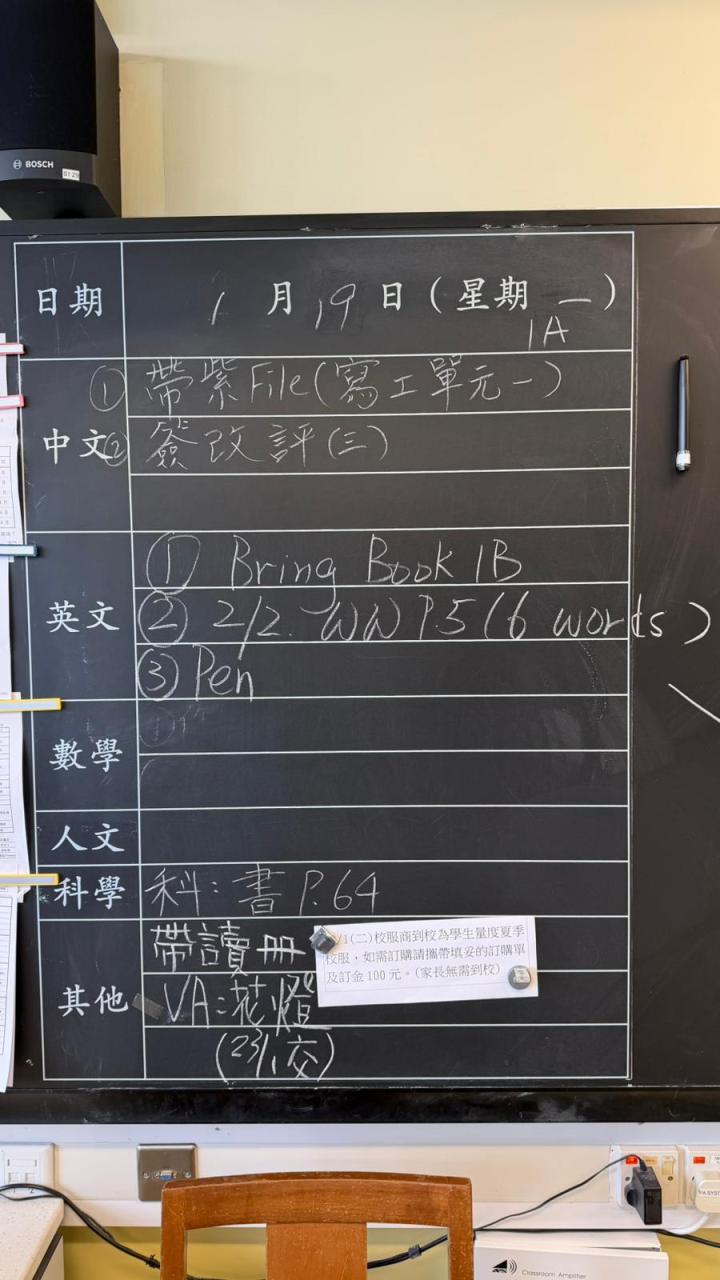 BOSCH
日期 1 月 19 日 ( 星期 一 )
1A
中文
① 帶紫File(寫工單元一)
② 簽改評(三)
英文
① Bring Book 1B
② 2/2. WN P5 (6 words)
③ Pen
數學
人文
科學
科: 書 P.64
其他
帶讀冊
/1(二)校服商到校為學生量度夏季
校服,如需訂購請攜帶填妥的訂購單
及訂金 100 元。(家長無需到校)
VA: 花燈
(23/1交)
Classroom Amplifier